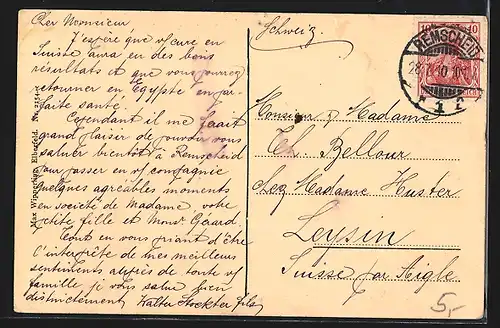 Cher Monsieur
J'espère que v/ cure en
Suisse aura eu des bons
résultats et que vous pourrez
retourner en Egypte en par-
faite santé!
Cependant il me ferait
grand plaisir de pouvoir vous
saluer bientôt à Remscheid
pour passer en v/ compagnie
quelques agréables moments
en société de Madame votre
petite fille et Monsr Gérard.
Tout en vous priant d'être
l'interprète de mes meilleurs
sentiments auprès de toute v/
famille je vous salue bien
distinctement Walter fils
Max Wipperling, Elberfeld. No.
Schweiz
10 10
REMSCHEID
Monsieur & Madame
Bellour
chez Madame Huster
Leysin
Suisse par Aigle
5,-